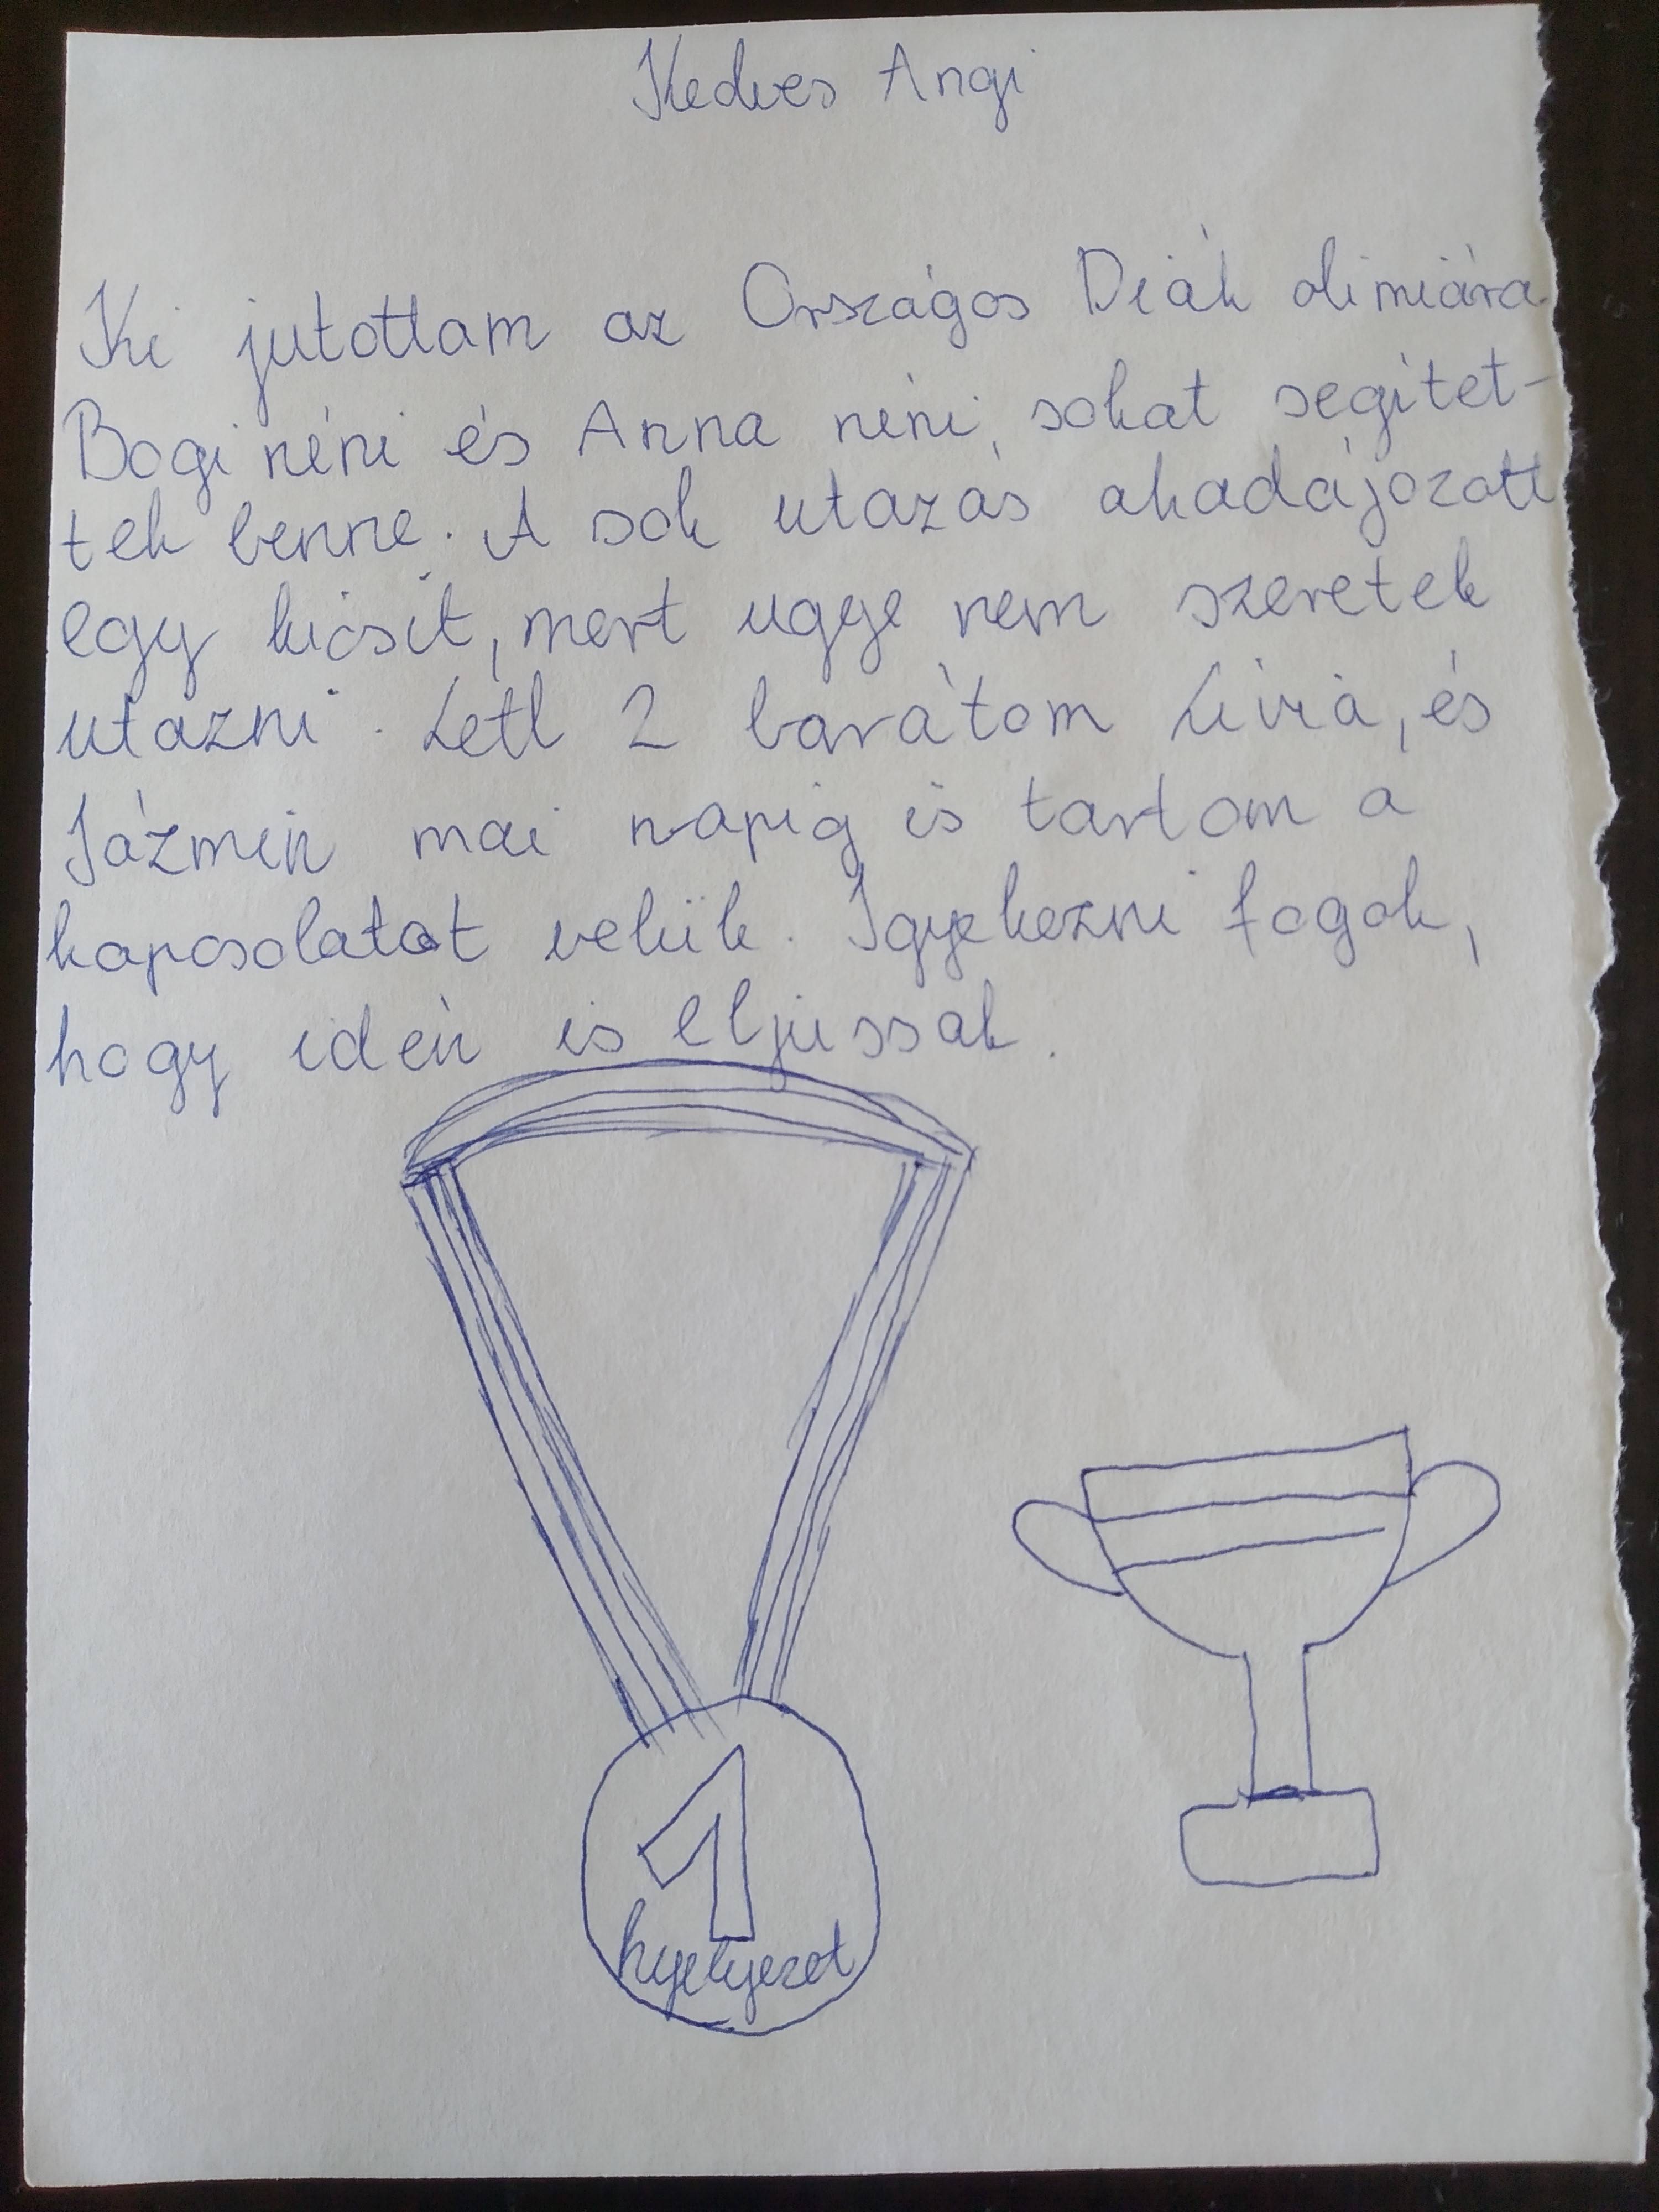 Kedves Angi
Ki jutottam az Országos Diák olimiára.
Bogi néni és Anna néni, sokat segitet-
tek benne. A sok utazás akadájozott
egy kicsit, mert ugye nem szeretek
utazni. Lett 2 barátom Lívia, és
Jázmin mai napig is tartom a
kapcsolatot velük. Igyekezni fogok,
hogy idén is eljussak.
1
hyelyezet